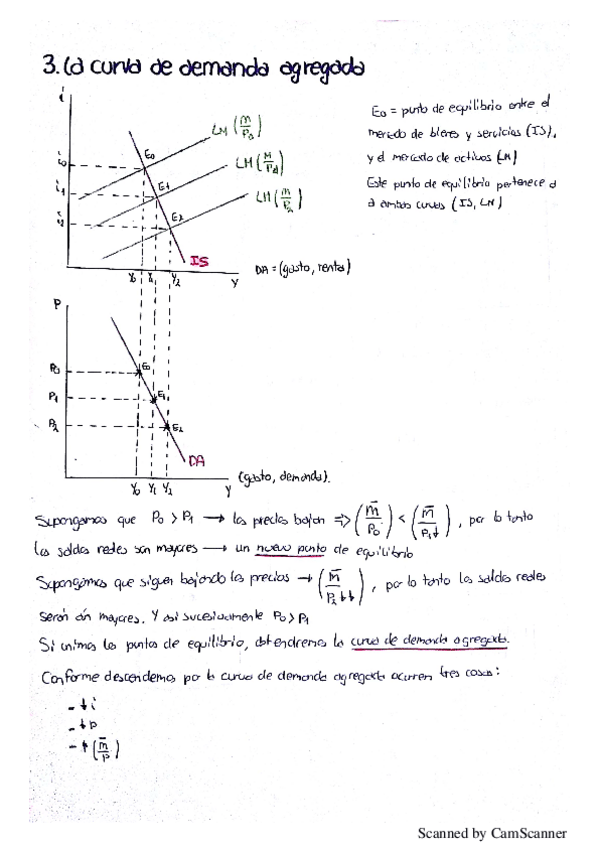 3. La curva de demanda agregada
i
LM (M̄/P0)
LM (M̄/P1)
LM (M̄/P2)
i0
i1
i2
E0
E1
E2
IS
Y0 Y1 Y2
Y
E0 = punto de equilibrio entre el
mercado de bienes y servicios (IS),
y el mercado de activos (LM)
Este punto de equilibrio pertenece a
a ambas curvas (IS, LM)
DA = (gasto, renta)
P
P0
P1
P2
E0
E1
E2
DA
Y0 Y1 Y2
Y
(gasto, demanda).
Supongamos que P0 > P1 → los precios bajan => (M̄/P0) < (M̄/P1↓), por lo tanto
los saldos reales son mayores → un nuevo punto de equilibrio
Supongamos que siguen bajando los precios → (M̄/P2↓↓), por lo tanto los saldos reales
serán aún mayores. Y así sucesivamente P0 > P1
Si unimos los puntos de equilibrio, obtendremos la curva de demanda agregada.
Conforme descendemos por la curva de demanda agregada ocurren tres cosas:
- ↓ i
- ↓ P
- ↑ (M̄/P)
Scanned by CamScanner